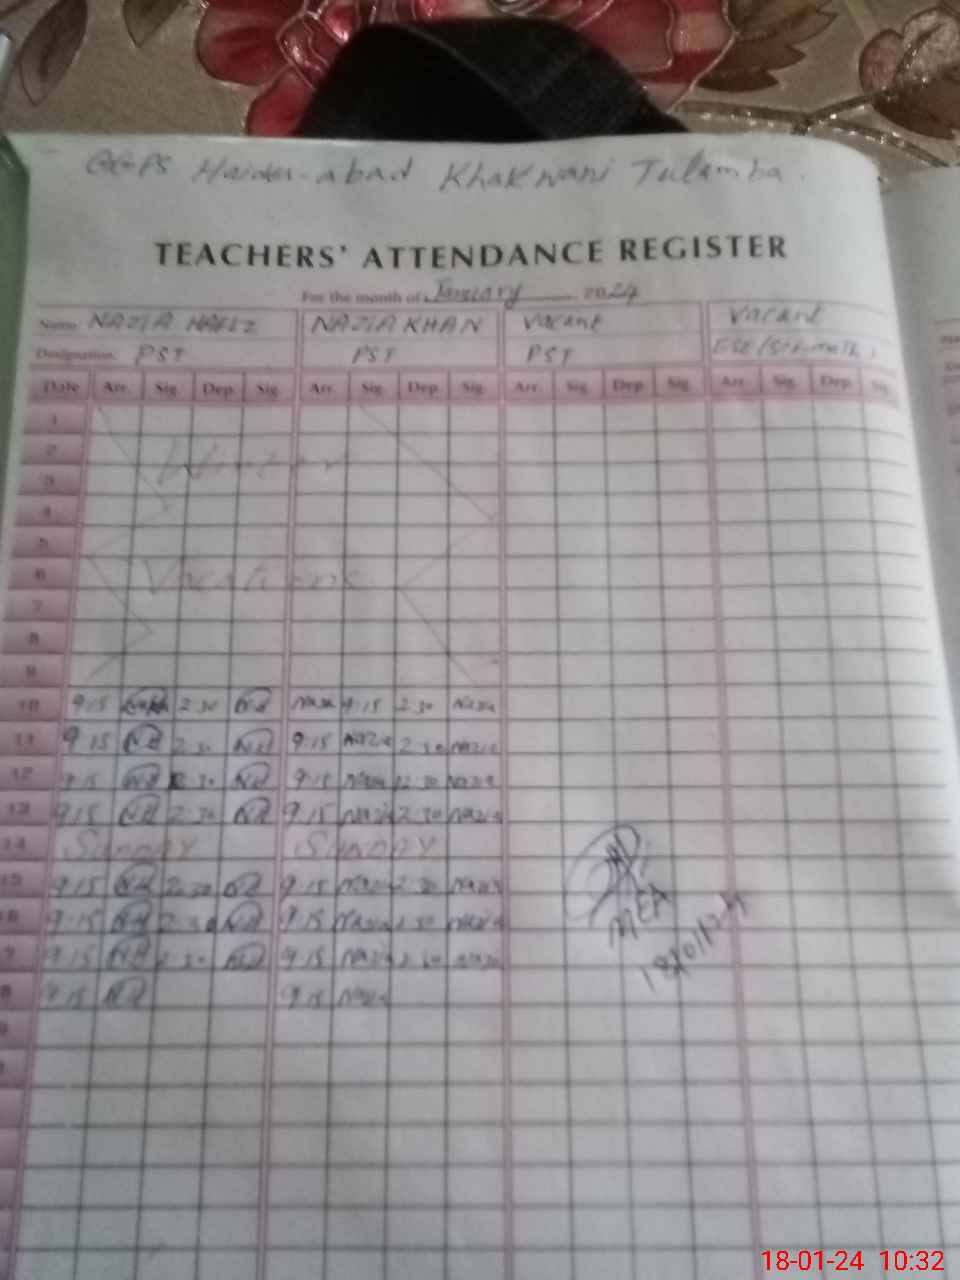 GGPS Haider-abad Khakwani Tulamba.
TEACHERS' ATTENDANCE REGISTER
For the month of January 2024
Name NAZIA HAFIZ NAZIA KHAN Vacant Vacant
Designation PST PST PST
Date Arr. Sig. Dep. Sig. Arr. Sig. Dep. Sig. Arr. Sig. Dep. Sig. Arr. Sig. Dep. Sig.
1
2 Winter
3
4
5
6 Vacations
7
8
9
10 9:15 2:30 Nazia 9:15 2:30 Nazia
11 9:15 2:30 9:15 Nazia 2:30 Nazia
12 9:15 2:30 9:15 Nazia 2:30 Nazia
13 9:15 2:30 9:15 Nazia 2:30 Nazia
14 SUNDAY SUNDAY
15 9:15 2:30 9:15 Nazia 2:30 Nazia
16 9:15 2:30 9:15 Nazia 2:30 Nazia
7 9:15 2:30 9:15 Nazia 2:30 Nazia
8 9:15 9:15 Nazia
MEA
18/01/24
18-01-24 10:32